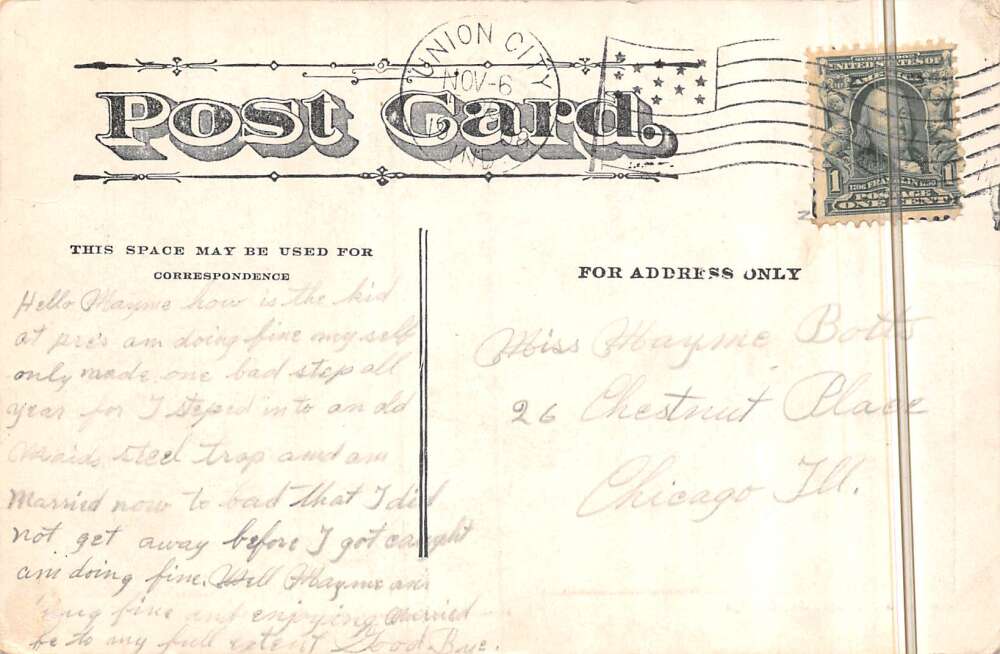 UNION CITY
NOV-6
IND.
Post Card.
SERIES 1902
UNITED STATES OF
AMERICA
1 1706 FRANKLIN 1790 1
POSTAGE
ONE CENT
THIS SPACE MAY BE USED FOR
CORRESPONDENCE
Hello Mayme how is the kid
at pre's am doing fine my self
only made one bad step all
year for I steped into an old
Maids steel trap and am
Married now to bad that I did
not get away before I got caught
am doing fine. Well Mayme am
fine and enjoying married
life to my full extent Good Bye.
FOR ADDRESS ONLY
Miss Mayme Botts
26 Chestnut Place
Chicago Ill.